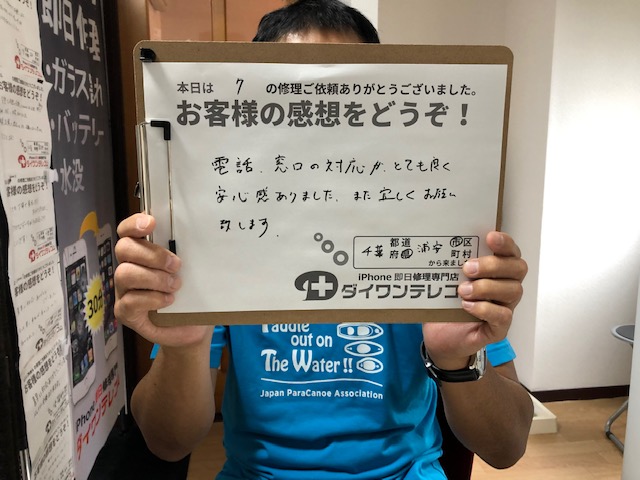 本日は 7 の修理ご依頼ありがとうございました。
お客様の感想をどうぞ！
電話、窓口の対応が、とても良く
安心感ありました、また宜しくお願い
致します。
千葉 都道府県 浦安 市区町村
から来ました
iPhone 即日修理専門店
ダイワンテレコ
Paddle
out on
The Water!!
Japan ParaCanoe Association
即日修理
・ガラス割れ
・バッテリー
・水没
30分
iPhone
ダイワンテレコ
お客様の感想をどうぞ！